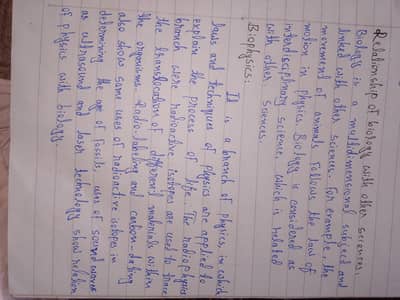 Relationship of biology with other sciences:
Biology is a multidimensional subject and
linked with other sciences. For example, the
movement of animals follows the law of
motion in physics. Biology is considered as
interdisciplinary science, which is related
with other sciences.
Biophysics:
It is a branch of physics, in which
laws and techniques of physics are applied to
explain the process of life. The radiophysics
branch were radioactive isotopes are used to trace
the translocation of different materials within
the organisms. Radio-labelling and carbon-dating
also show same uses of radioactive isotopes in
determining the age of fossils, uses of sound waves
as ultrasound and laser technology show relation
of physics with biology.